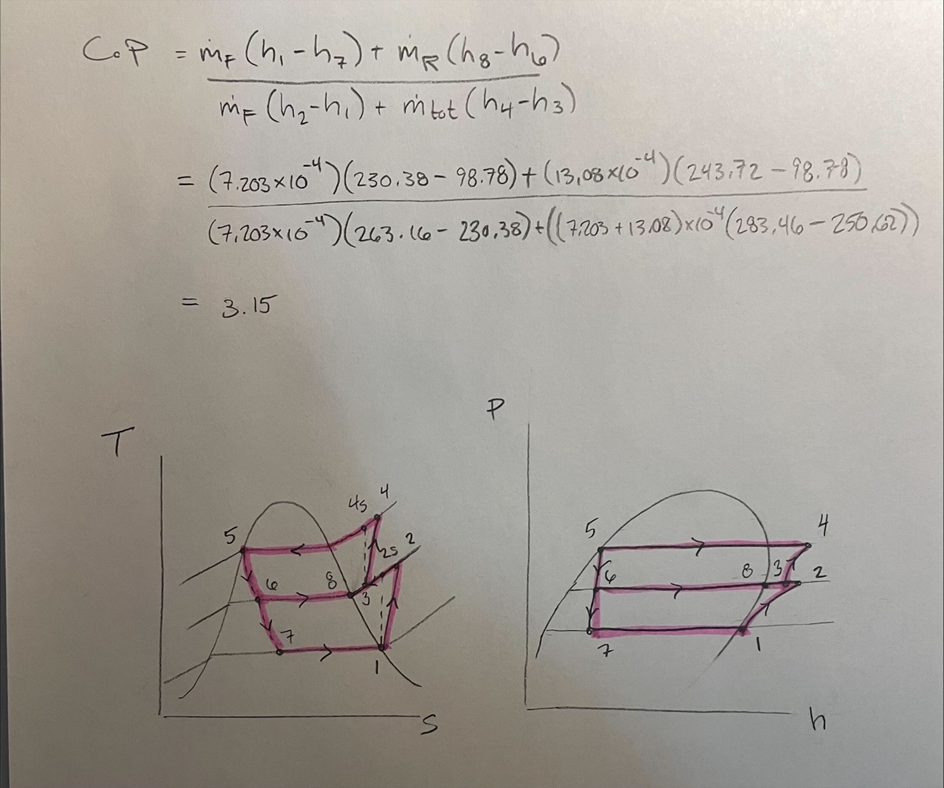 CoP = ṁF (h1 − h7) + ṁR (h8 − h6)
ṁF (h2 − h1) + ṁtot (h4 − h3)
= (7.203×10^-4)(230.38 − 98.78) + (13.08×10^-4)(243.72 − 98.78)
(7.203×10^-4)(263.16 − 230.38) + ((7.203 + 13.08)×10^-4(283.46 − 250.62))
= 3.15
P
T
4s 4
5 2s 2
6 8 3
7
1
S
5 4
6 8 3 2
7 1
h